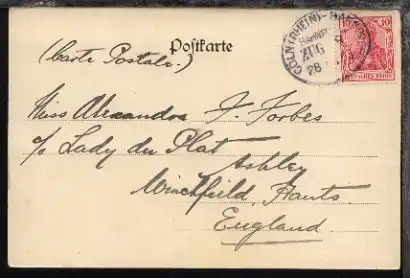 Postkarte
(Carte Postale.)
CÖLN (RHEIN)-HANNOVER
BAHNPOST
ZUG
28
10 10
DEUTSCHES REICH
Miss Alexandra F. Forbes
c/o Lady du Plat
Ashley
Winchfield Hants.
England.